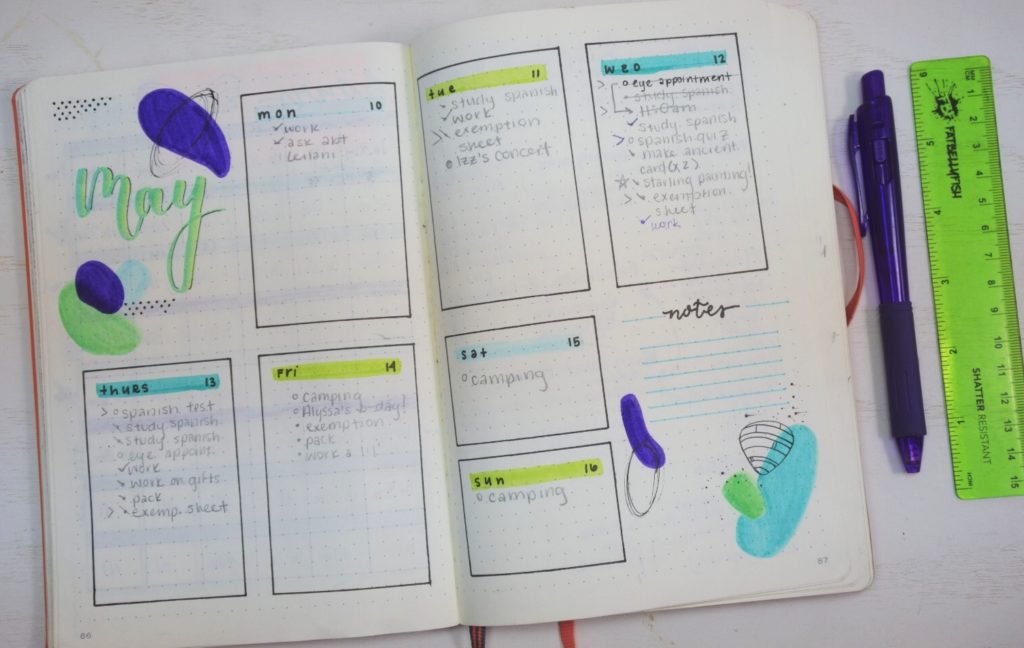 may
mon 10
work
ask abt
leilani
tue 11
study spanish
work
exemption
sheet
Izz's concert
wed 12
eye appointment
study spanish
11:50am
study spanish
spanish quiz
make ancient
card (x2)
starling painting!
exemption
sheet
work
thurs 13
spanish test
study spanish
study spanish
eye appoint.
work
work on gifts
pack
exemp. sheet
Fri 14
camping
Alyssa's b-day!
exemption
pack
work
sat 15
camping
sun 16
camping
notes
86
87
FATBELLYFISH
SHATTER RESISTANT
MM
CM
1
2
3
4
5
6
7
8
9
10
11
12
13
14
15
6
5
4
3
2
1
INCH